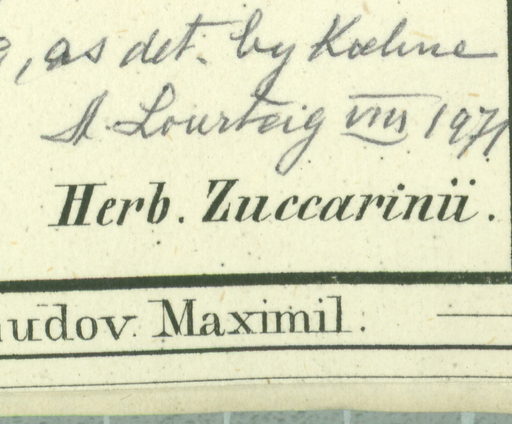 , as det. by Koehne
A. Lourteig VIII 1971
Herb. Zuccarinii.
udov. Maximil.